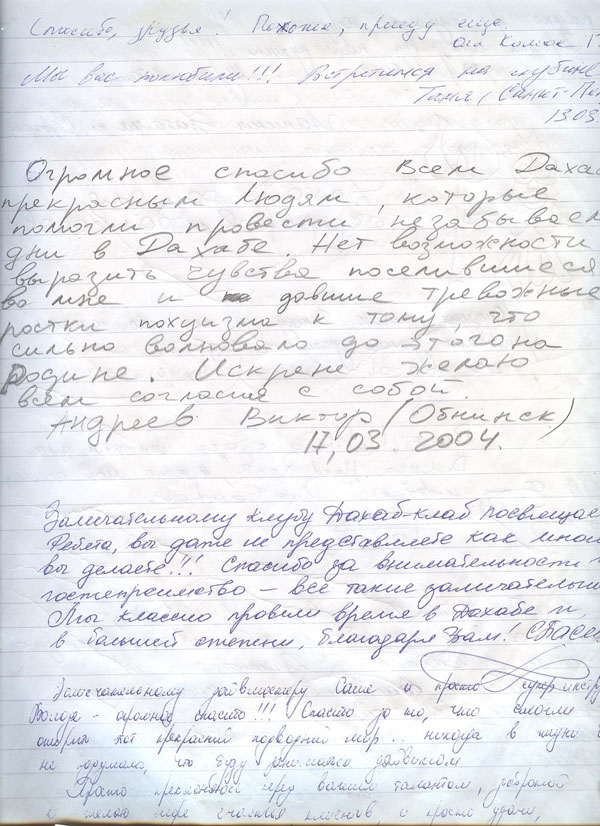 Спасибо, друзья! Похоже, приеду еще.
Мы вас полюбили!!! Встретимся на глубине
Таня, (Санкт-Пет
13.03
Огромное спасибо всем Даха
прекрасным людям, которые
помогли провести незабываем
дни в Дахабе. Нет возможности
выразить чувства поселившиеся
во мне и давшие тревожные
ростки похуизма к тому, что
сильно волновало до этого на
Родине. Искрене желаю
всем согласия с собой.
Андреев Виктор (Обнинск)
17,03. 2004.
Замечательному клубу Дахаб-клаб посвящае
Ребята, вы даже не представляете как мног
вы делаете!!! Спасибо за внимательность
гостеприимство – все такие замечательн
Мы классно провели время в Дахабе и,
в большей степени, благодаря Вам! СПАСИ
Замечательному дайвмастеру Саше и просто супер инстру
Володе - огромное спасибо!!! Спасибо за то, что смогли
открыть этот прекрасный подводный мир... никогда в жизни
не думала, что буду заниматься дайвингом
Просто преклоняюсь перед вашим талантом, добротой
и желаю море счастья и просто удачи,